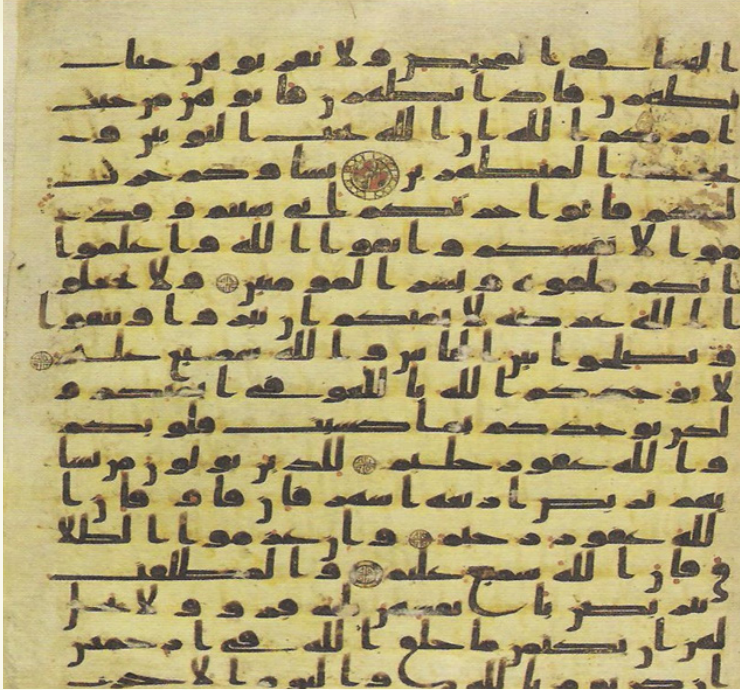 النسا في المحيض ولا تقربوهن حتى
يطهرن فاذا تطهرن فاتوهن من حيث
امركم الله ان الله يحب التوبين و
يحب المتطهرين نساوكم حرث
لكم فاتوا حرثكم انى شئتم وقد
موا لانفسكم واتقوا الله واعلموا
انكم ملقوه وبشر المومنين ولا تجعلو
ا الله عرضة لايمنكم ان تبروا وتتقوا
وتصلحوا بين الناس والله سميع عليم
لا يواخذكم الله باللغو في ايمنكم و
لكن يواخذكم بما كسبت قلوبكم
والله غفور حليم للذين يولون من نسا
يهم تربص اربعة اشهر فان فاو فان ا
لله غفور رحيم وان عزموا الطلا
ق فان الله سميع عليم والمطلقت
يتربصن بانفسهن ثلثة قرو ولا يحل
لهن ان يكتمن ما خلق الله في ارحمهن
ان كن يومن بالله واليوم الاخر